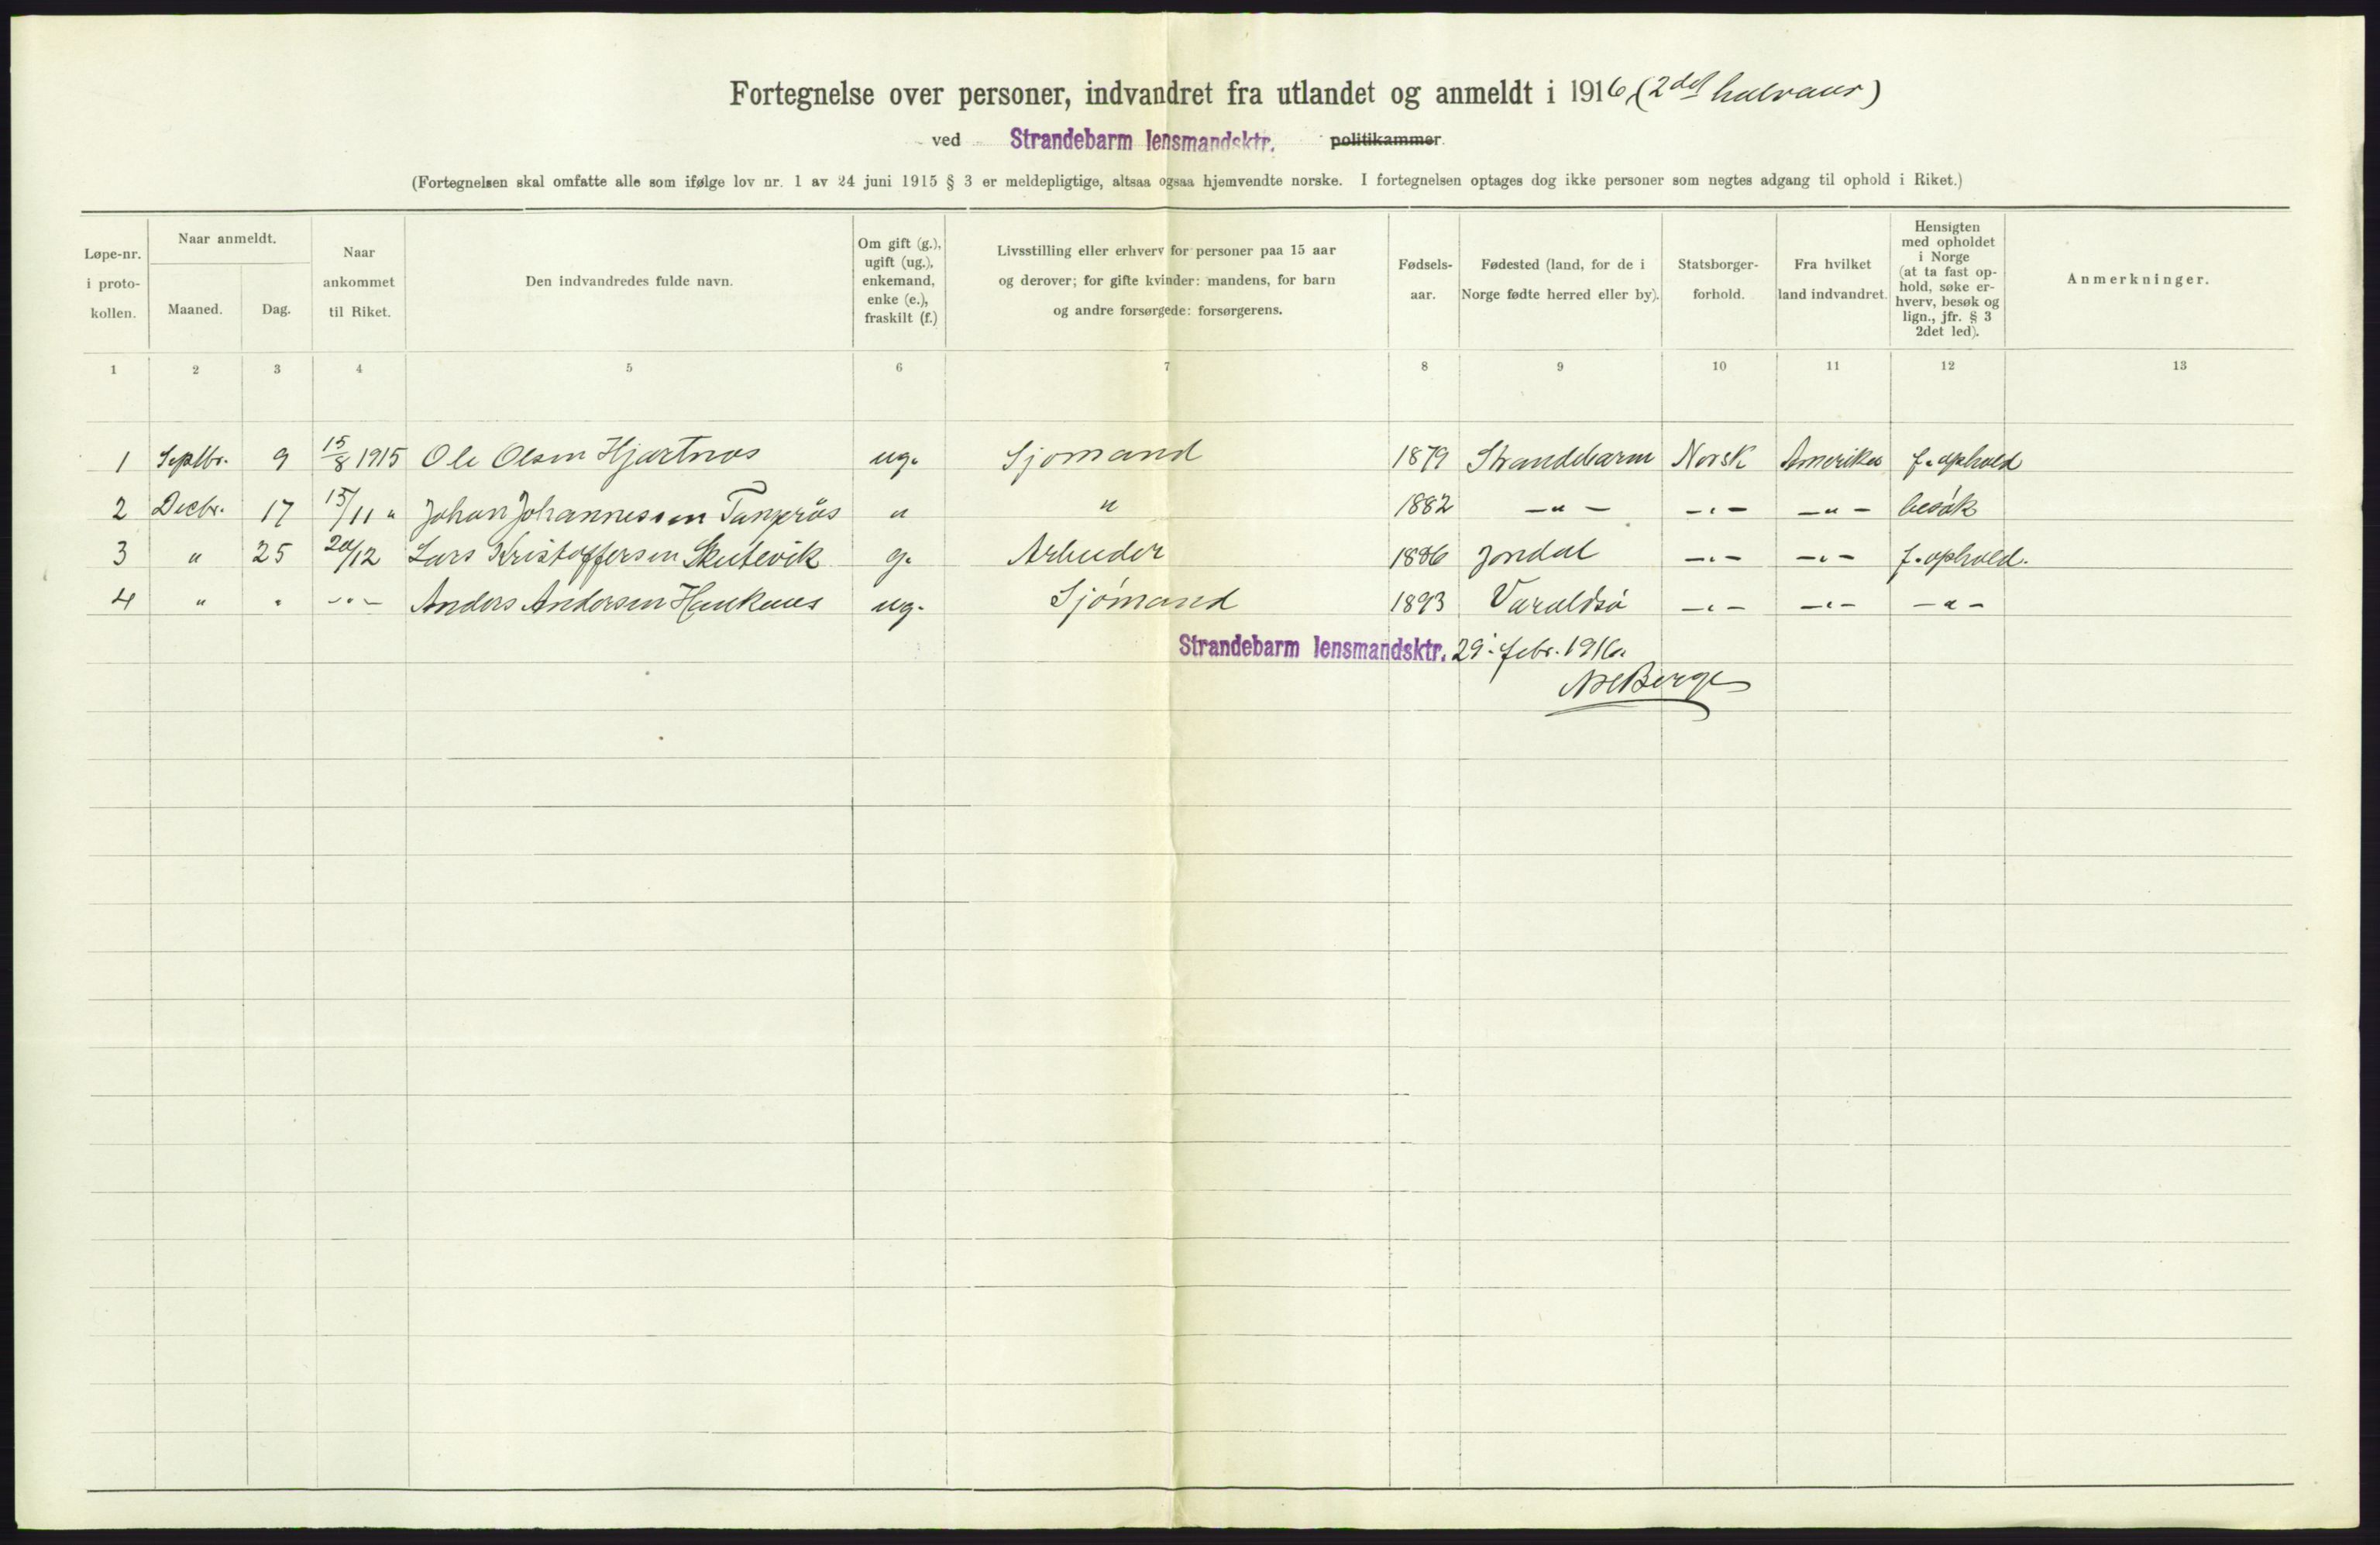 Fortegnelse over personer, indvandret fra utlandet og anmeldt i 1916 (2det halvaar)
ved Strandebarm lensmandsktr. politikammer.
(Fortegnelsen skal omfatte alle som ifølge lov nr. 1 av 24 juni 1915 § 3 er meldepligtige, altsaa ogsaa hjemvendte norske. I fortegnelsen optages dog ikke personer som negtes adgang til ophold i Riket.)
Løpe-nr.
i proto-
kollen.
Naar anmeldt.
Maaned.
Dag.
Naar
ankommet
til Riket.
Den indvandredes fulde navn.
Om gift (g.),
ugift (ug.),
enkemand,
enke (e.),
fraskilt (f.)
Livsstilling eller erhverv for personer paa 15 aar
og derover; for gifte kvinder: mandens, for barn
og andre forsørgede: forsørgerens.
Fødsels-
aar.
Fødested (land, for de i
Norge fødte herred eller by).
Statsborger-
forhold.
Fra hvilket
land indvandret.
Hensigten
med opholdet
i Norge
(at ta fast op-
hold, søke er-
hverv, besøk og
lign., jfr. § 3
2det led).
Anmerkninger.
1 2 3 4 5 6 7 8 9 10 11 12 13
1 Septbr. 9 15/8 1915 Ole Olsen Hjartnes ug. Sjømand 1879 Strandebarm Norsk Amerika f. ophold
2 Decbr. 17 15/11 " Johan Johannessen Tangerås " " 1882 -"- -"- -"- besøk
3 " 25 20/12 Lars Kristoffersen Skutevik g. Arbeider 1886 Jondal -"- -"- f. ophold.
4 " " -"- Anders Andersen Haukanes ug. Sjømand 1893 Varaldsø -"- -"- -"-
Strandebarm lensmandsktr. 29. febr. 1916.
Berge